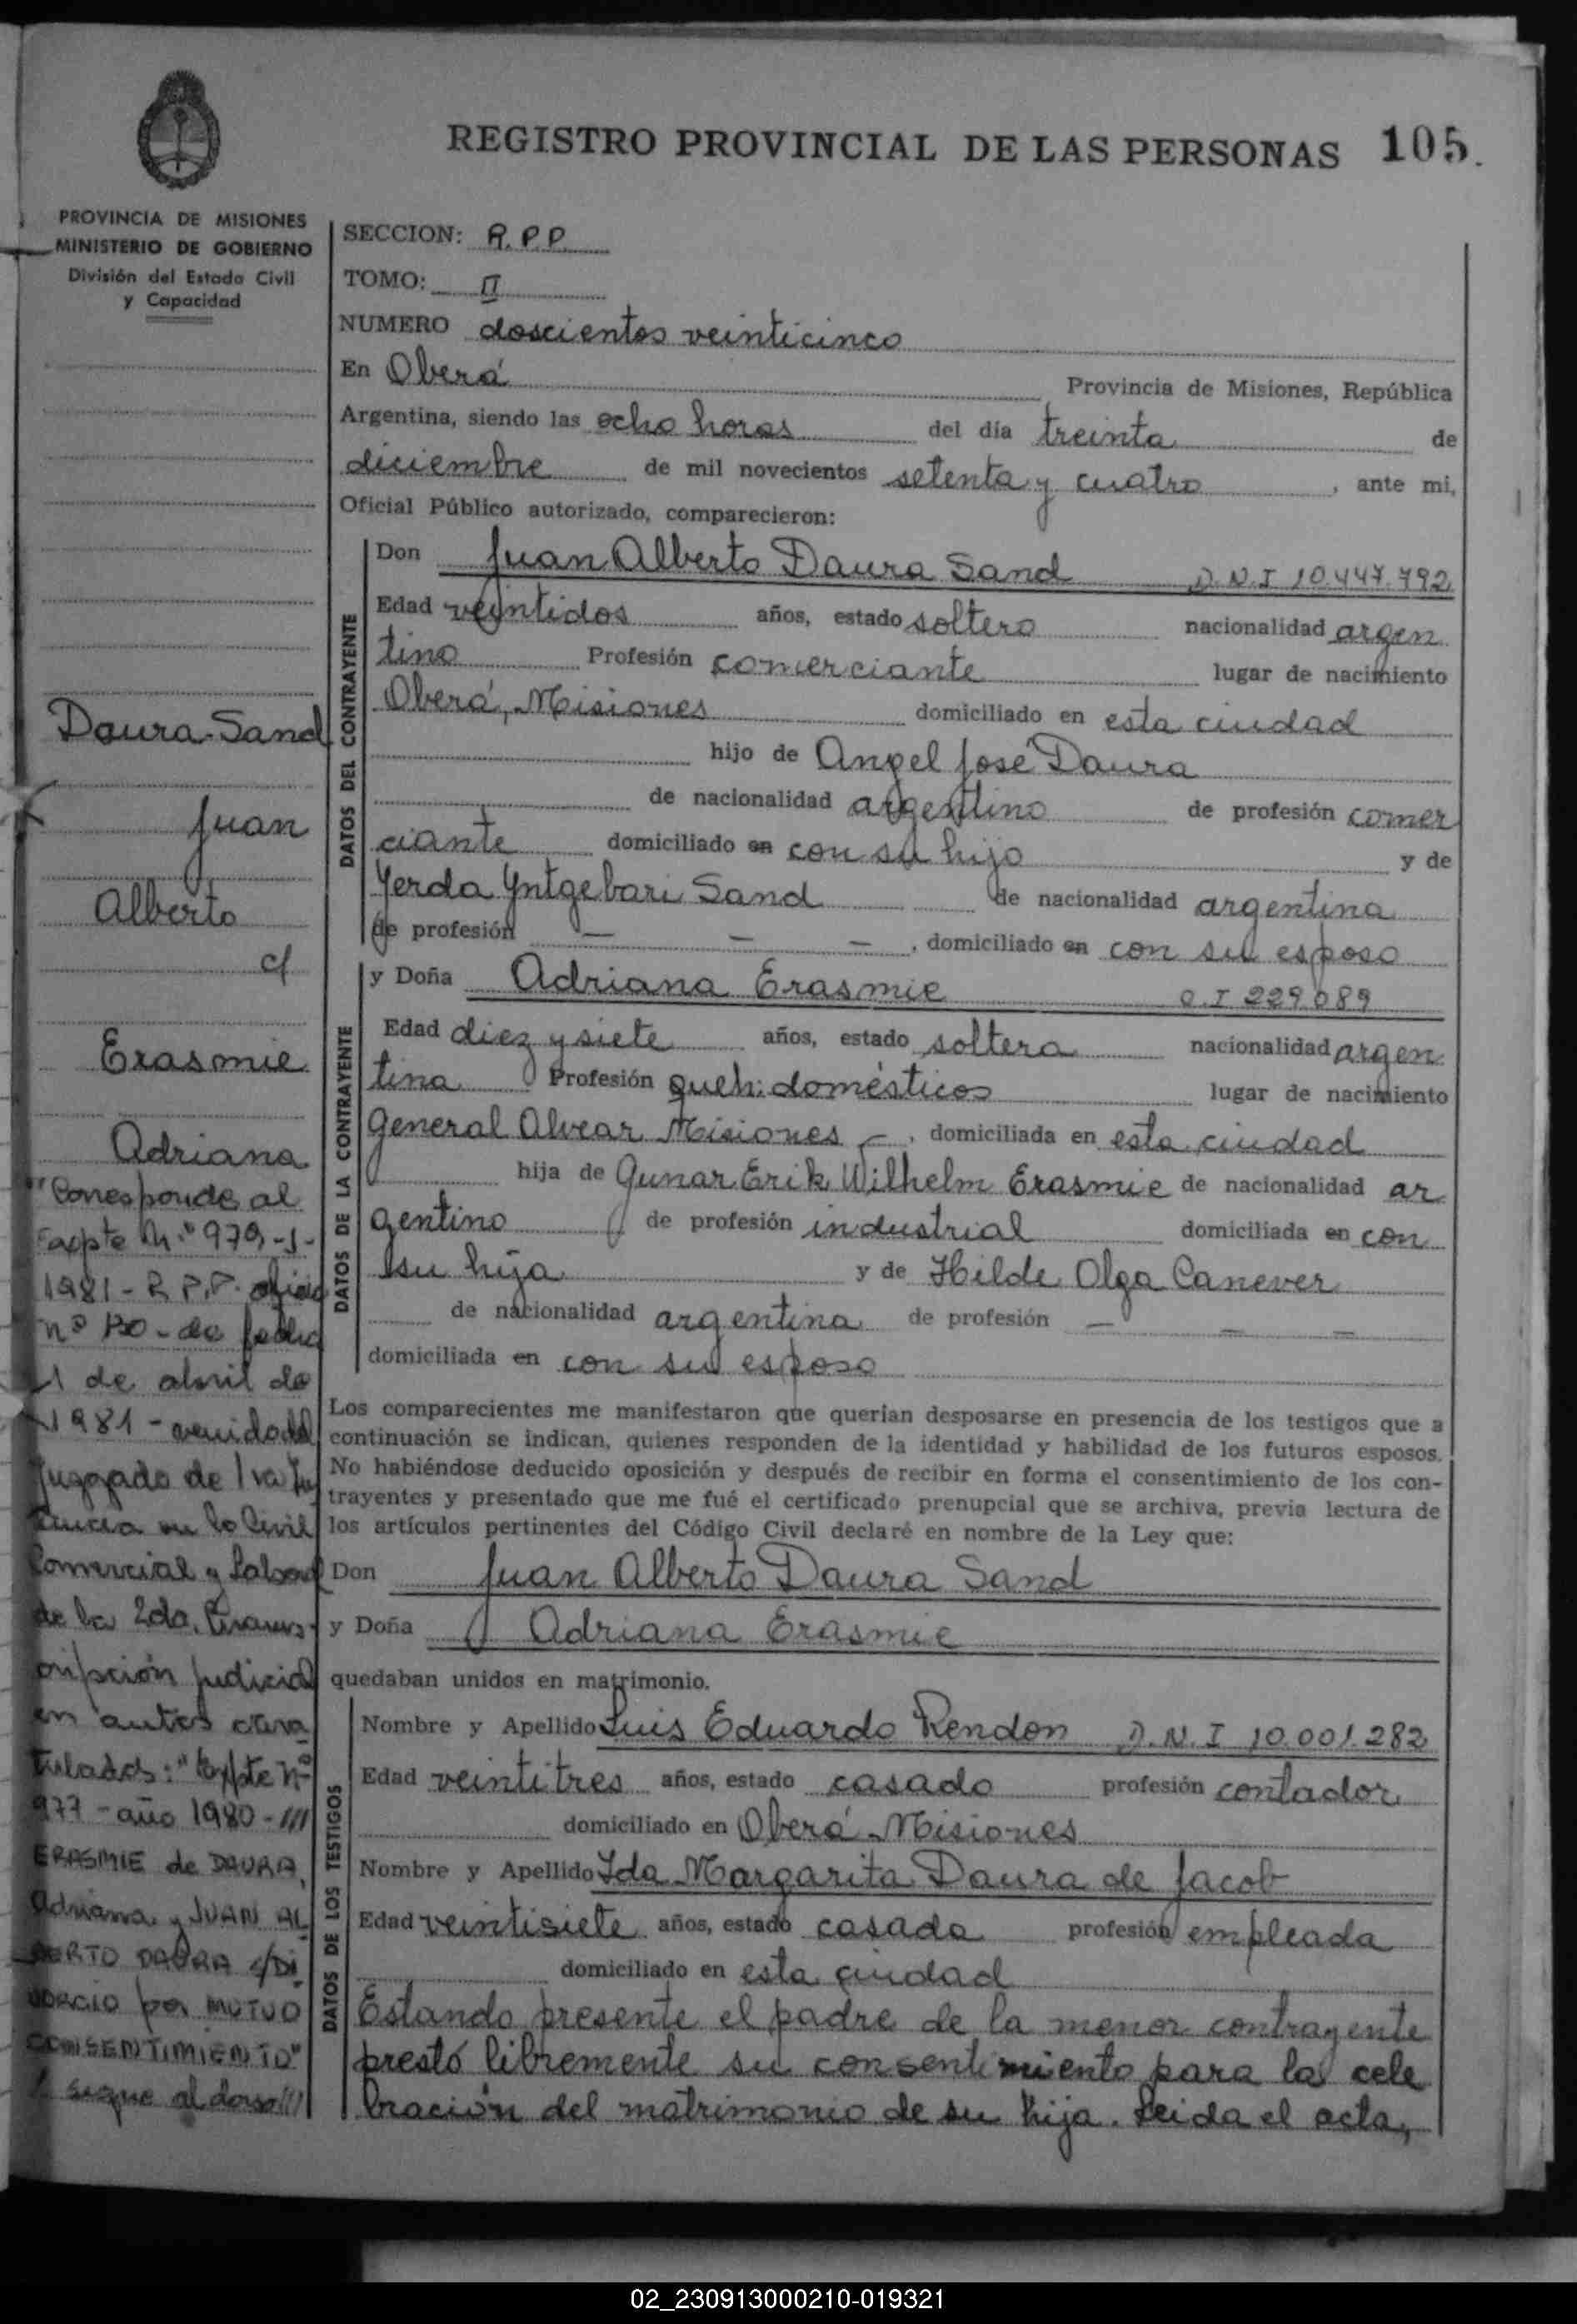 REGISTRO PROVINCIAL DE LAS PERSONAS 105.
PROVINCIA DE MISIONES
MINISTERIO DE GOBIERNO
División del Estado Civil
y Capacidad
Daura Sand
Juan
Alberto
c/
Erasmie
Adriana
"Corresponde al
Expte N.º 979-J-
1981 - R.P.P. oficio
nº 130 - de fecha
1 de abril de
1981 - venido del
Juzgado de 1ra Ins
tancia en lo Civil
Comercial y Laboral
de la 2da. Circuns-
cripción Judicial
en autos cara
tulados: "Expte nº
977 - año 1980 - ///
ERASMIE de DAURA,
Adriana y JUAN AL
BERTO DAURA s/DI
VORCIO por MUTUO
CONSENTIMIENTO"
sigue al dorso///
SECCION: R.P.P.
TOMO: II
NUMERO doscientos veinticinco
En Oberá Provincia de Misiones, República
Argentina, siendo las ocho horas del día treinta de
diciembre de mil novecientos setenta y cuatro, ante mi,
Oficial Público autorizado, comparecieron:
DATOS DEL CONTRAYENTE
Don Juan Alberto Daura Sand D.N.I 10.447.792
Edad veintidos años, estado soltero nacionalidad argen
tino Profesión comerciante lugar de nacimiento
Oberá, Misiones domiciliado en esta ciudad
hijo de Angel José Daura
de nacionalidad argentino de profesión comer
ciante domiciliado en con su hijo y de
Yerda Yntgebari Sand de nacionalidad argentina
de profesión — — —, domiciliado en con su esposo
DATOS DE LA CONTRAYENTE
y Doña Adriana Erasmie C.I 229.089
Edad diez y siete años, estado soltera nacionalidad argen
tina Profesión queh. domésticos lugar de nacimiento
General Alvear Misiones —, domiciliada en esta ciudad
hija de Gunar Erik Wilhelm Erasmie de nacionalidad ar
gentino de profesión industrial domiciliada en con
su hija y de Hilde Olga Canever
de nacionalidad argentina de profesión — — —
domiciliada en con su esposo
Los comparecientes me manifestaron que querían desposarse en presencia de los testigos que a
continuación se indican, quienes responden de la identidad y habilidad de los futuros esposos.
No habiéndose deducido oposición y después de recibir en forma el consentimiento de los con-
trayentes y presentado que me fué el certificado prenupcial que se archiva, previa lectura de
los artículos pertinentes del Código Civil declaré en nombre de la Ley que:
Don Juan Alberto Daura Sand
y Doña Adriana Erasmie
quedaban unidos en matrimonio.
DATOS DE LOS TESTIGOS
Nombre y Apellido Luis Eduardo Rendon D.N.I 10.001.282
Edad veintitres años, estado casado profesión contador
domiciliado en Oberá Misiones
Nombre y Apellido Ida Margarita Daura de Jacob
Edad veintisiete años, estado casada profesión empleada
domiciliado en esta ciudad
Estando presente el padre de la menor contrayente
prestó libremente su consentimiento para la cele
bración del matrimonio de su hija. Leida el acta,
02_230913000210-019321